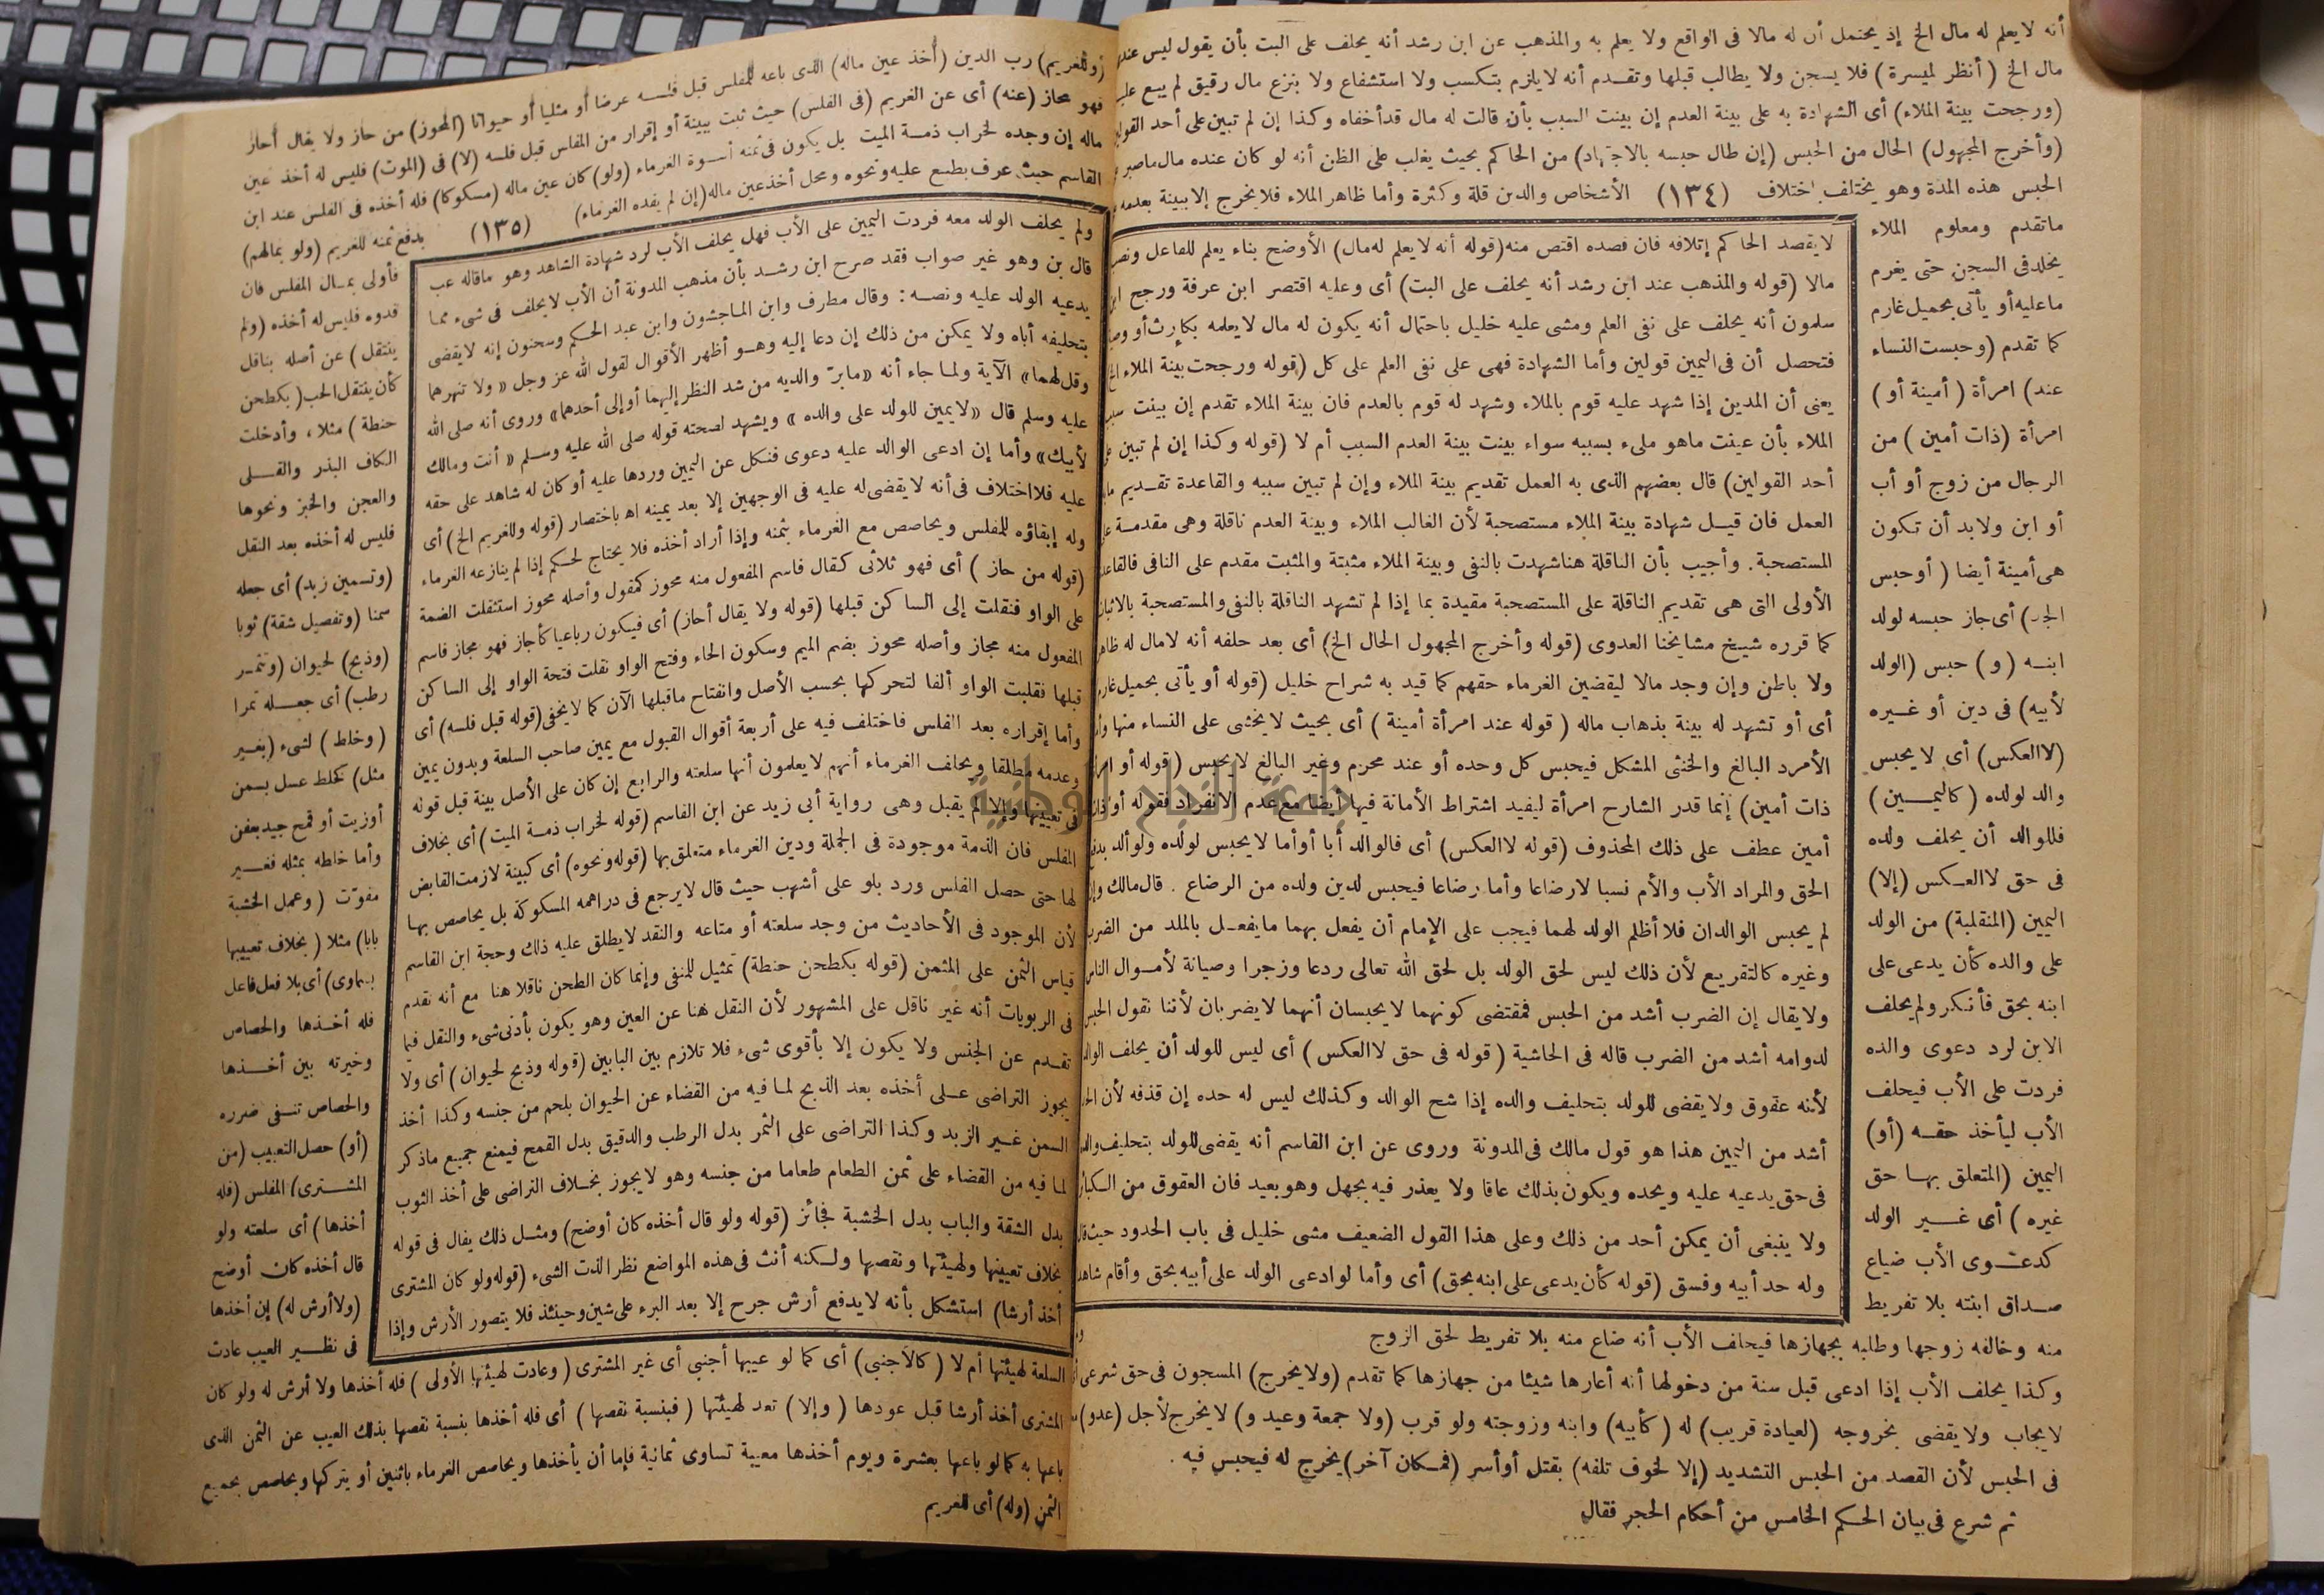 أنه لا يعلم له مال الخ إذ يحتمل أن له مالا فى الواقع ولا يعلم به والمذهب عن ابن رشد أنه يحلف على البت بأن يقول ليس عندى
مال الخ (أنظر لميسرة) فلا يسجن ولا يطالب قبلها وتقدم أنه لا يلزم بتكسب ولا استشفاع ولا بنزع مال رقيق لم يبع عليه
(ورجحت بينة الملاء) أى الشهادة به على بينة العدم إن بينت السبب بأن قالت له مال قد أخفاه وكذا إن لم تبين على أحد القولين
(وأخرج المجهول) الحال من الحبس (إن طال حبسه بالاجتهاد) من الحاكم بحيث يغلب على الظن أنه لو كان عنده مال ماصبر
الحبس هذه المدة وهو يختلف باختلاف (١٣٤) الأشخاص والدين قلة وكثرة وأما ظاهر الملاء فلا يخرج إلا ببينة بعدمه
ماتقدم ومعلوم الملاء
يخلد فى السجن حتى يغرم
ما عليه أو يأتى بحميل غارم
كما تقدم (وحبست النساء
عند) امرأة (أمينة أو)
امرأة (ذات أمين) من
الرجال من زوج أو أب
أو ابن ولابد أن تكون
هى أمينة أيضا (أو حبس
الجد) أى جاز حبسه لولد
ابنه (و) حبس (الولد
لأبيه) فى دين أو غيره
(لا العكس) أى لا يحبس
والد لولده (كاليمين)
فللوالد أن يحلف ولده
فى حق لا العكس (إلا)
اليمين (المنقلبة) من الولد
على والده كأن يدعى على
ابنه بحق فأنكر ولم يحلف
الابن لرد دعوى والده
فردت على الأب فيحلف
الأب ليأخذ حقه (أو)
اليمين (المتعلق بها حق
غيره) أى غير الولد
كدعوى الأب ضياع
صداق ابنته بلا تفريط
لا يقصد الحاكم إتلافه فان قصده اقتص منه (قوله أنه لا يعلم له مال) الأوضح بناء يعلم للفاعل ونصب
مالا (قوله والمذهب عند ابن رشد أنه يحلف على البت) أى وعليه اقتصر ابن عرفة ورجح ابن
سلمون أنه يحلف على نفى العلم ومشى عليه خليل باحتمال أنه يكون له مال لا يعلمه بكارث أو وصية
فتحصل أن فى اليمين قولين وأما الشهادة فهى على نفى العلم على كل (قوله ورجحت بينة الملاء الخ
يعنى أن المدين إذا شهد عليه قوم بالملاء وشهد له قوم بالعدم فان بينة الملاء تقدم إن بينت سبب
الملاء بأن عينت ماهو ملىء بسببه سواء بينت بينة العدم السبب أم لا (قوله وكذا إن لم تبين على
أحد القولين) قال بعضهم الذى به العمل تقديم بينة الملاء وإن لم تبين سببه والقاعدة تقديم مابه
العمل فان قيل شهادة بينة الملاء مستصحبة لأن الغالب الملاء وبينة العدم ناقلة وهى مقدمة على
المستصحبة. وأجيب بأن الناقلة هنا شهدت بالنفى وبينة الملاء مثبتة والمثبت مقدم على النافى فالقاعدة
الأولى التى هى تقديم الناقلة على المستصحبة مقيدة بما إذا لم تشهد الناقلة بالنفى والمستصحبة بالاثبات
كما قرره شيخ مشايخنا العدوى (قوله وأخرج المجهول الحال الخ) أى بعد حلفه أنه لامال له ظاهر
ولا باطن وإن وجد مالا ليقضين الغرماء حقهم كما قيد به شراح خليل (قوله أو يأتى بحميل غارم
أى أو تشهد له بينة بذهاب ماله (قوله عند امرأة أمينة) أى بحيث لا يخشى على النساء منها وأن
الأمرد البالغ والخنثى المشكل فيحبس كل وحده أو عند محرم وغير البالغ لا يحبس (قوله أو امرأة
ذات أمين) إنما قدر الشارح امرأة ليفيد اشتراط الأمانة فيها أيضا مع عدم الانفراد فقوله أو ذات
أمين عطف على ذلك المحذوف (قوله لا العكس) أى فالوالد أبا أو أما لا يحبس لولده ولو ألد بدفع
الحق والمراد الأب والأم نسبا لا رضاعا وأما رضاعا فيحبس لدين ولده من الرضاع. قال مالك وإن
لم يحبس الوالدان فلا أظلم الولد لهما فيجب على الإمام أن يفعل بهما مايفعل بالملد من الضرب
وغيره كالتقريع لأن ذلك ليس لحق الولد بل لحق الله تعالى ردعا وزجرا وصيانة لأموال الناس
ولا يقال إن الضرب أشد من الحبس فمقتضى كونهما لا يحبسان أنهما لا يضربان لأننا نقول الحبس
لدوامه أشد من الضرب قاله فى الحاشية (قوله فى حق لا العكس) أى ليس للولد أن يحلف الوالد
لأنه عقوق ولا يقضى للولد بتحليف والده إذا شح الوالد وكذلك ليس له حده إن قذفه لأن الحد
أشد من اليمين هذا هو قول مالك فى المدونة وروى عن ابن القاسم أنه يقضى للولد بتحليف والده
فى حق يدعيه عليه ويحده ويكون بذلك عاقا ولا يعذر فيه بجهل وهو بعيد فان العقوق من الكبائر
ولا ينبغى أن يمكن أحد من ذلك وعلى هذا القول الضعيف مشى خليل فى باب الحدود حيث قال
وله حد أبيه وفسق (قوله كأن يدعى على ابنه بحق) أى وأما لو ادعى الولد على أبيه بحق وأقام شاهدا
منه وخالفه زوجها وطلبه بجهازها فيحلف الأب أنه ضاع منه بلا تفريط لحق الزوج
وكذا يحلف الأب إذا ادعى قبل سنة من دخولها أنه أعارها شيئا من جهازها كما تقدم (ولا يخرج) المسجون فى حق شرعى أى
لا يجاب ولا يقضى بخروجه (لعيادة قريب) له (كأبيه) وابنه وزوجته ولو قرب (ولا جمعة وعيد و) لا يخرج لأجل (عدو)
فى الحبس لأن القصد من الحبس التشديد (إلا لخوف تلفه) بقتل أو أسر (فمكان آخر) يخرج له فيحبس فيه.
ثم شرع فى بيان الحكم الخامس من أحكام الحجر فقال
(وللغريم) رب الدين (أخذ عين ماله) الذى باعه للمفلس قبل فلسه عرضا أو مثليا أو حيوانا (المحوز) من حاز ولا يقال أحاز
فهو محاز (عنه) أى عن الغريم (فى الفلس) حيث ثبت ببينة أو إقرار من المفلس قبل فلسه (لا) فى (الموت) فليس له أخذ عين
ماله إن وجده لخراب ذمة الميت بل يكون فى ثمنه أسوة الغرماء (ولو) كان عين ماله (مسكوكا) فله أخذه فى الفلس عند ابن
القاسم حيث عرف بطبع عليه ونحوه ومحل أخذ عين ماله (إن لم يفده الغرماء) (١٣٥) بدفع ثمنه للغريم (ولو بمالهم)
فأولى بمال المفلس فان
فدوه فليس له أخذه (ولم
ينتقل) عن أصله بناقل
كأن ينتقل الحب (بكطحن
حنطة) مثلا، وأدخلت
الكاف البذر والقلى
والعجن والخبز ونحوها
فليس له أخذه بعد النقل
(وتسمين زبد) أى جعله
سمنا (وتفصيل شقة) ثوبا
(وذبح) لحيوان (وتتمر
رطب) أى جعله تمرا
(وخلط) لشىء (بغير
مثل) كخلط عسل بسمن
أو زيت أو قمح جيد بعفن
وأما خلطه بمثله فغير
مفوت (وعمل الخشبة
بابا) مثلا (بخلاف تعييبها
بسماوى) أى بلا فعل فاعل
فله أخذها والحصاص
وخيرته بين أخذها
والحصاص تنفى ضرره
(أو) حصل التعييب (من
المشترى) المفلس (فله
أخذها) أى سلعته ولو
قال أخذه كان أوضح
(ولا أرش له) إن أخذها
فى نظير العيب عادت
ولم يحلف الولد معه فردت اليمين على الأب فهل يحلف الأب لرد شهادة الشاهد وهو ماقاله عب
قال بن وهو غير صواب فقد صرح ابن رشد بأن مذهب المدونة أن الأب لا يحلف فى شىء مما
يدعيه الولد عليه ونصه: وقال مطرف وابن الماجشون وابن عبد الحكم وسحنون إنه لا يقضى
بتحليفه أباه ولا يمكن من ذلك إن دعا إليه وهو أظهر الأقوال لقول الله عز وجل «ولا تنهرهما
وقل لهما» الآية ولما جاء أنه «مابر والديه من شد النظر إليهما أو إلى أحدهما» وروى أنه صلى الله
عليه وسلم قال «لا يمين للولد على والده» ويشهد لصحته قوله صلى الله عليه وسلم «أنت ومالك
لأبيك» وأما إن ادعى الوالد عليه دعوى فنكل عن اليمين وردها عليه أو كان له شاهد على حقه
عليه فلا اختلاف فى أنه لا يقضى له عليه فى الوجهين إلا بعد يمينه اه باختصار (قوله وللغريم الخ) أى
وله إبقاؤه للمفلس ويحاصص مع الغرماء بثمنه وإذا أراد أخذه فلا يحتاج لحكم إذا لم ينازعه الغرماء
(قوله من حاز) أى فهو ثلاثى كقال فاسم المفعول منه محوز كمقول وأصله محووز استثقلت الضمة
على الواو فنقلت إلى الساكن قبلها (قوله ولا يقال أحاز) أى فيكون رباعيا كأجاز فهو مجاز فاسم
المفعول منه مجاز وأصله محوز بضم الميم وسكون الحاء وفتح الواو نقلت فتحة الواو إلى الساكن
قبلها فقلبت الواو ألفا لتحركها بحسب الأصل وانفتاح ماقبلها الآن كما لا يخفى (قوله قبل فلسه) أى
وأما إقراره بعد الفلس فاختلف فيه على أربعة أقوال القبول مع يمين صاحب السلعة وبدون يمين
وعدمه مطلقا ويحلف الغرماء أنهم لا يعلمون أنها سلعته والرابع إن كان على الأصل بينة قبل قوله
فى تعيينها وإلا لم يقبل وهى رواية أبى زيد عن ابن القاسم (قوله لخراب ذمة الميت) أى بخلاف
المفلس فان الذمة موجودة فى الجملة ودين الغرماء متعلق بها (قوله ونحوه) أى كبينة لازمت القابض
لها حتى حصل الفلس ورد بلو على أشهب حيث قال لا يرجع فى دراهمه المسكوكة بل يحاصص بها
لأن الموجود فى الأحاديث من وجد سلعته أو متاعه والنقد لا يطلق عليه ذلك وحجة ابن القاسم
قياس الثمن على المثمن (قوله بكطحن حنطة) تمثيل للمنفى وإنما كان الطحن ناقلا هنا مع أنه تقدم
فى الربويات أنه غير ناقل على المشهور لأن النقل هنا عن العين وهو يكون بأدنى شىء والنقل فيما
تقدم عن الجنس ولا يكون إلا بأقوى شىء فلا تلازم بين البابين (قوله وذبح لحيوان) أى ولا
يجوز التراضى على أخذه بعد الذبح لما فيه من القضاء عن الحيوان بلحم من جنسه وكذا أخذ
السمن غير الزبد وكذا التراضى على التمر بدل الرطب والدقيق بدل القمح فيمنع جميع ماذكر
لما فيه من القضاء على ثمن الطعام طعاما من جنسه وهو لا يجوز بخلاف التراضى على أخذ الثوب
بدل الشقة والباب بدل الخشبة فجائز (قوله ولو قال أخذه كان أوضح) ومثل ذلك يقال فى قوله
بخلاف تعييبها ولهيئتها ونقصها ولكنه أنث فى هذه المواضع نظرا لذت الشىء (قوله ولو كان المشترى
أخذ أرشا) استشكل بأنه لا يدفع أرش جرح إلا بعد البرء على شين وحينئذ فلا يتصور الأرش وإذا
السلعة لهيئتها أم لا (كالأجنبى) أى كما لو عيبها أجنبى أى غير المشترى (وعادت لهيئتها الأولى) فله أخذها ولا أرش له ولو كان
المشترى أخذ أرشا قبل عودها (وإلا) تعد لهيئتها (فبنسبة نقصها) أى فله أخذها بنسبة نقصها بذلك العيب عن الثمن الذى
باعها به كما لو باعها بعشرة ويوم أخذها معيبة تساوى ثمانية فإما أن يأخذها ويحاصص الغرماء باثنين أو يتركها ويحاصص بجميع
الثمن (وله) أى للغريم
جامعة النجاح الوطنية